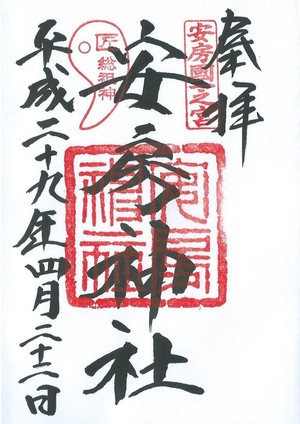 奉拝
安房國一之宮
安房神社
安房
神社
匠総祖神
平成二十九年四月二十二日